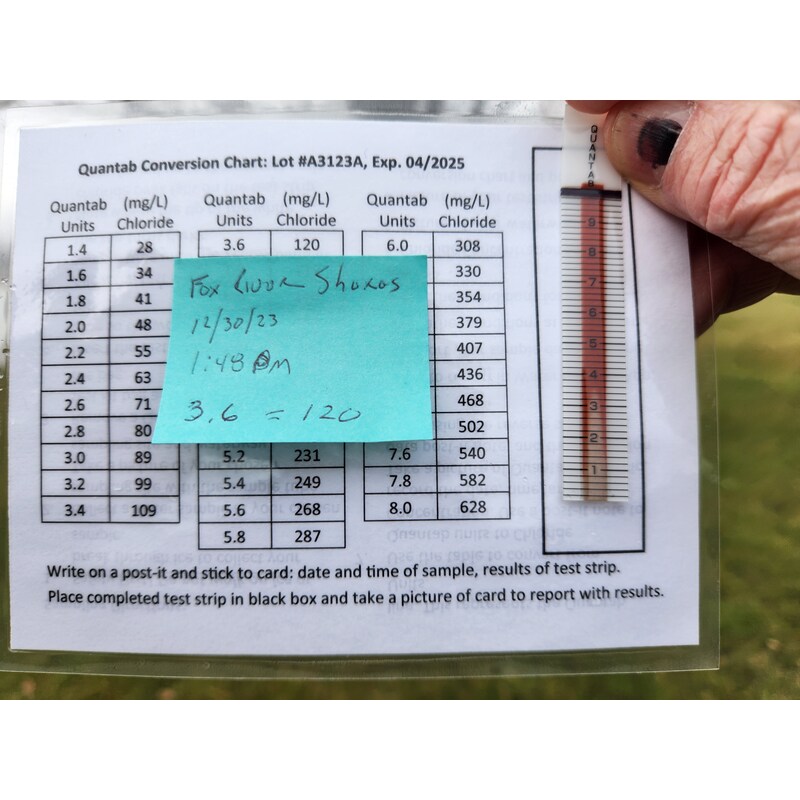 Quantab Conversion Chart: Lot #A3123A, Exp. 04/2025
Quantab Units (mg/L) Chloride
1.4 28
1.6 34
1.8 41
2.0 48
2.2 55
2.4 63
2.6 71
2.8 80
3.0 89
3.2 99
3.4 109
Quantab Units (mg/L) Chloride
3.6 120
5.2 231
5.4 249
5.6 268
5.8 287
Quantab Units (mg/L) Chloride
6.0 308
330
354
379
407
436
468
502
7.6 540
7.8 582
8.0 628
Fox River Shores
12/30/23
1:48 PM
3.6 = 120
QUANTAB
9
8
7
6
5
4
3
2
1
Write on a post-it and stick to card: date and time of sample, results of test strip.
Place completed test strip in black box and take a picture of card to report with results.